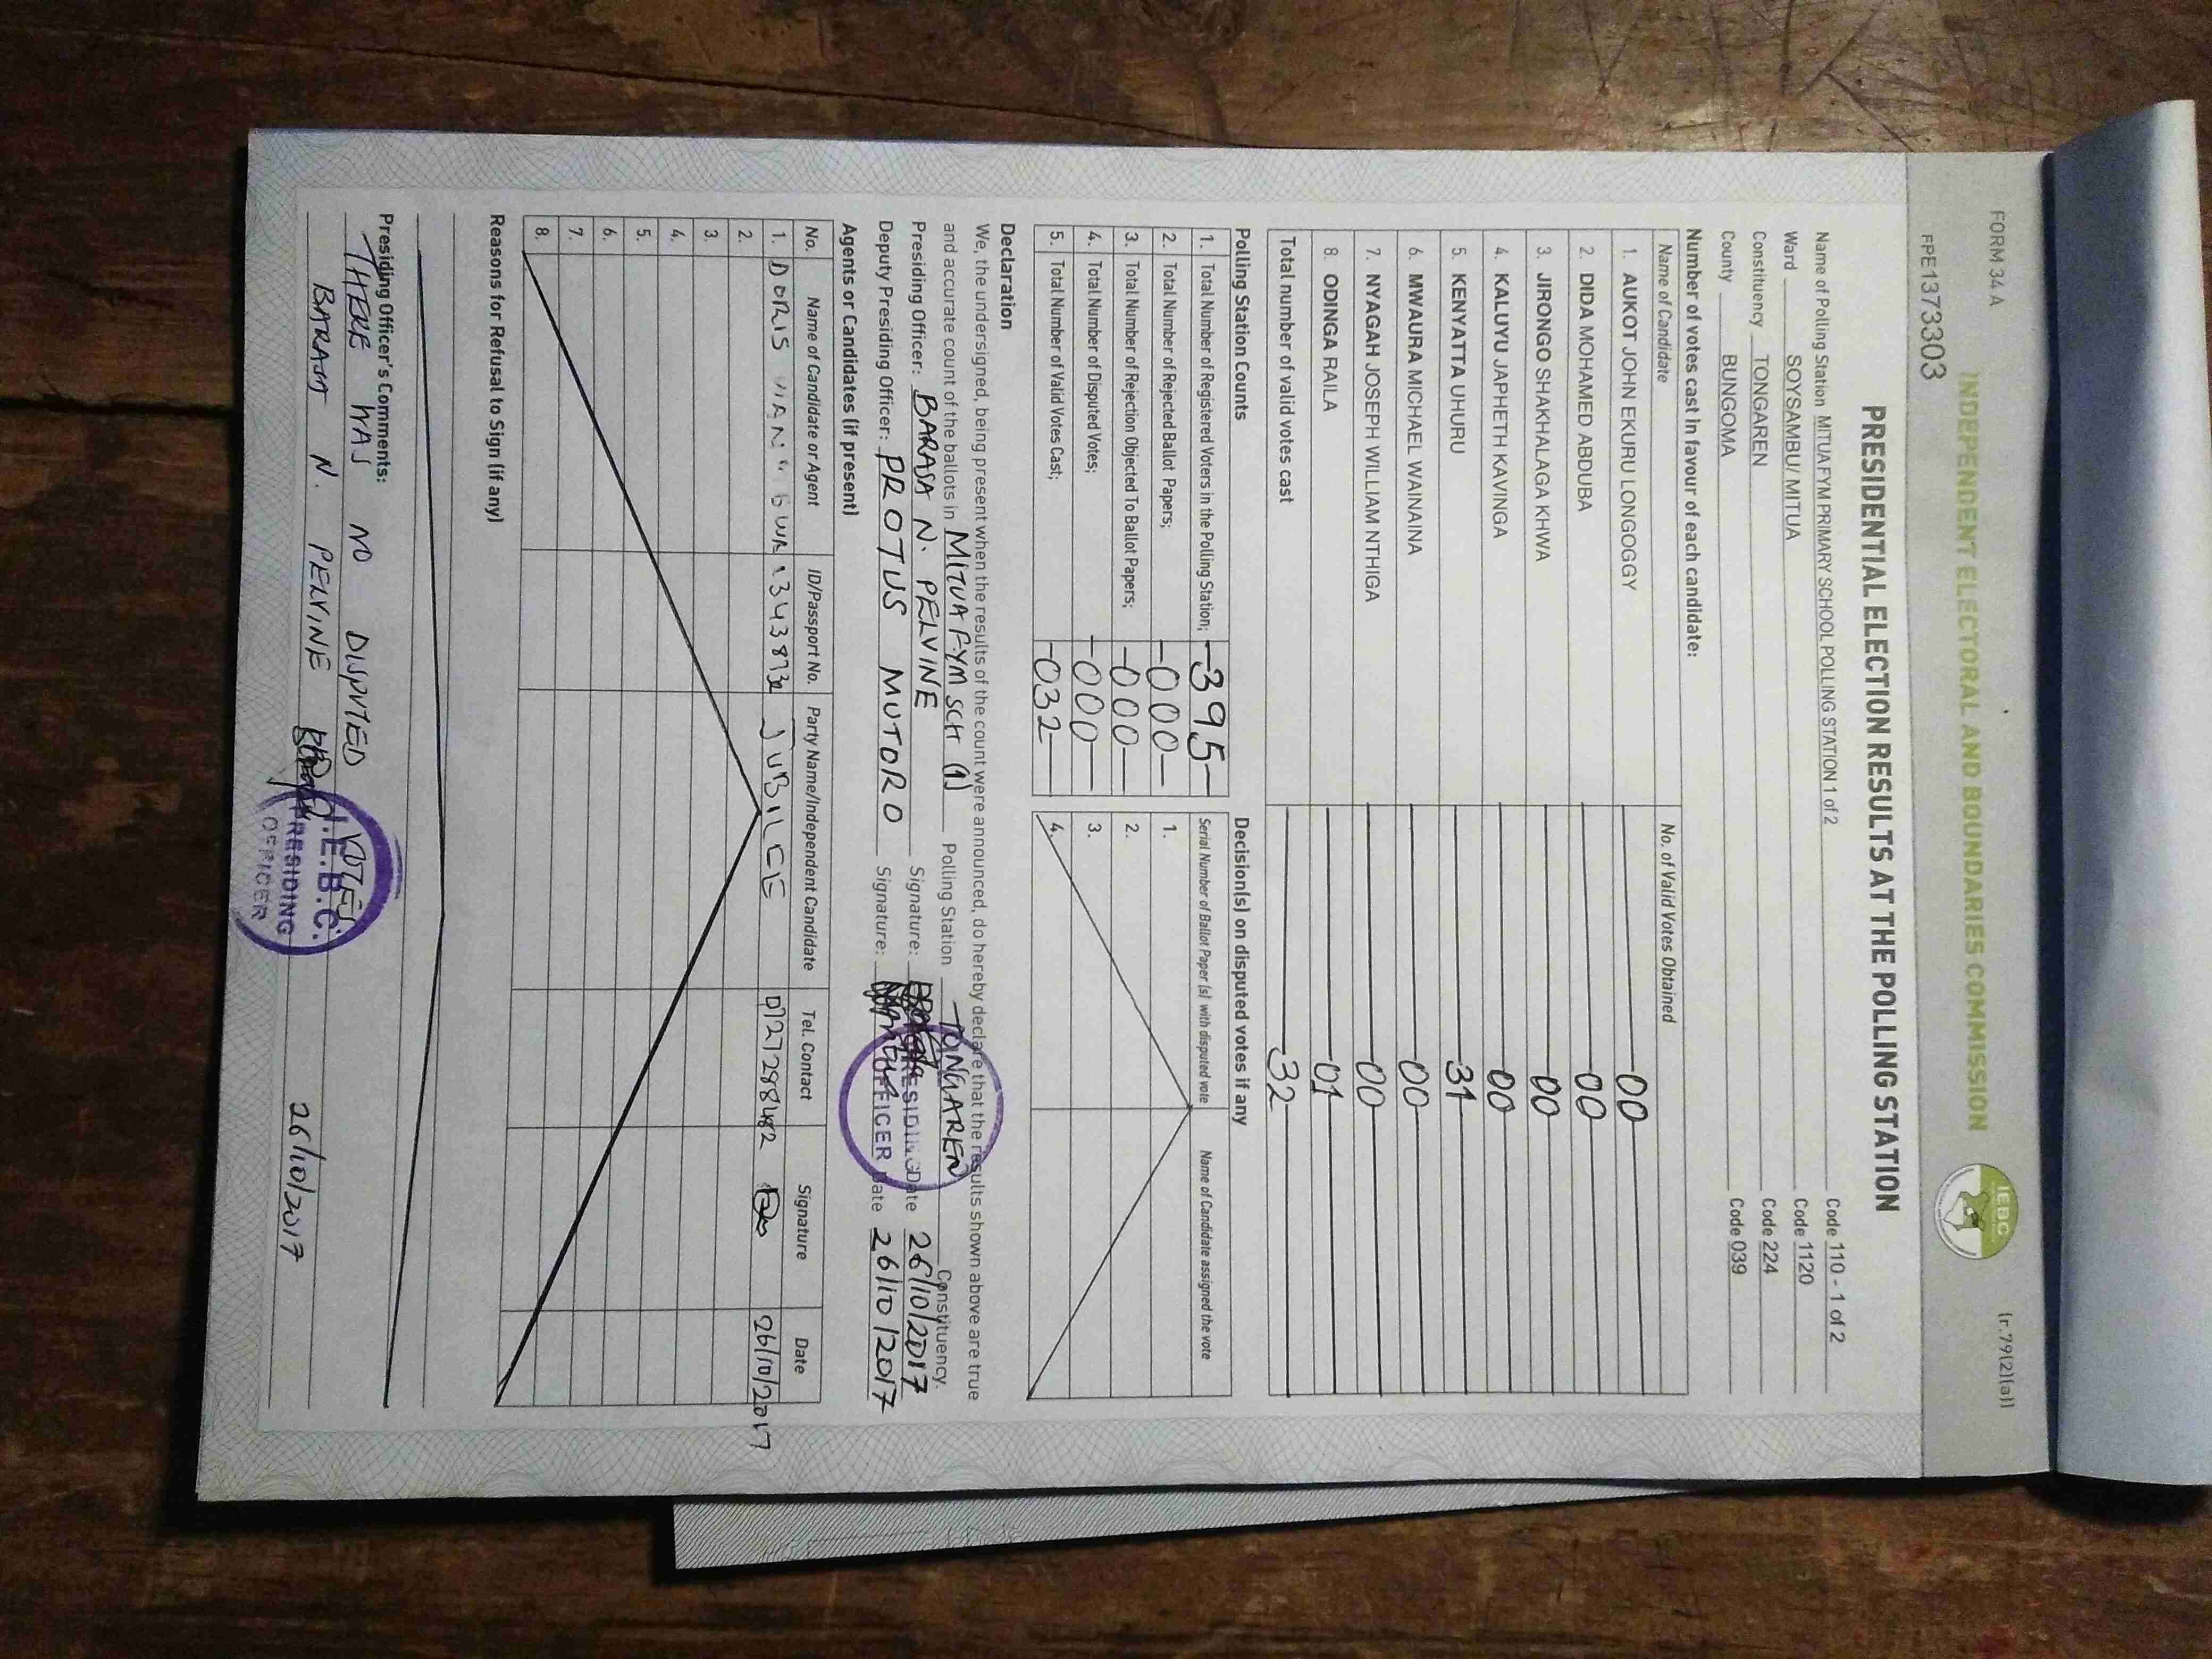 FORM 34 A
(r.79(2)(a))
INDEPENDENT ELECTORAL AND BOUNDARIES COMMISSION
IEBC
FPE1373303
PRESIDENTIAL ELECTION RESULTS AT THE POLLING STATION
Name of Polling Station MITUA FYM PRIMARY SCHOOL POLLING STATION 1 of 2 Code 110 - 1 of 2
Ward SOYSAMBU/ MITUA Code 1120
Constituency TONGAREN Code 224
County BUNGOMA Code 039
Number of votes cast in favour of each candidate:
Name of Candidate No. of Valid Votes Obtained
1. AUKOT JOHN EKURU LONGOGGY 00
2. DIDA MOHAMED ABDUBA 00
3. JIRONGO SHAKHALAGA KHWA 00
4. KALUYU JAPHETH KAVINGA 00
5. KENYATTA UHURU 31
6. MWAURA MICHAEL WAINAINA 00
7. NYAGAH JOSEPH WILLIAM NTHIGA 00
8. ODINGA RAILA 01
Total number of valid votes cast 32
Polling Station Counts
1. Total Number of Registered Voters in the Polling Station; 395
2. Total Number of Rejected Ballot Papers; 000
3. Total Number of Rejection Objected To Ballot Papers; 000
4. Total Number of Disputed Votes; 000
5. Total Number of Valid Votes Cast; 032
Decision(s) on disputed votes if any
Serial Number of Ballot Paper (s) with disputed vote Name of Candidate assigned the vote
1.
2.
3.
4.
Declaration
We, the undersigned, being present when the results of the count were announced, do hereby declare that the results shown above are true
and accurate count of the ballots in MITUA FYM SCH (1) Polling Station TONGAREN Constituency.
Presiding Officer: BARASA N. PELVINE Signature: Date 26/10/2017
Deputy Presiding Officer: PROTUS MUTORO Signature: Date 26/10/2017
PRESIDING
OFFICER
Agents or Candidates (if present)
No. Name of Candidate or Agent ID/Passport No. Party Name/Independent Candidate Tel. Contact Signature Date
1. DORIS JUBILEE 26/10/2017
2.
3.
4.
5.
6.
7.
8.
Reasons for Refusal to Sign (if any)
Presiding Officer's Comments:
THERE WAS NO DISPUTED VOTES
BARASA N. PELVINE 26/10/2017
I.E.B.C.
PRESIDING
OFFICER